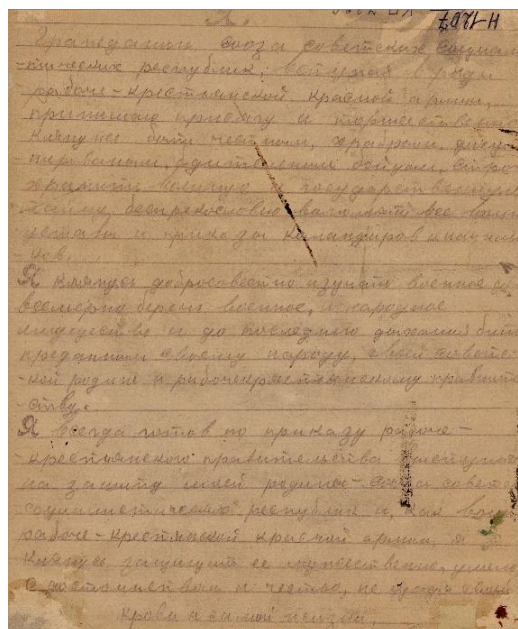 Гражданин союза советских социали
-тических республик, вступая в ряды
рабоче-крестьянской красной армии,
принимаю присягу и торжественно
клянусь быть честным, храбрым, дисци
бдительным бойцом, стро
хранить военную и государственную
тайну, беспрекословно все воин
уставы и приказы командиров и началь
ков.
Я клянусь добросовестно изучать военное де
всемерно беречь военное, и народное
имущество и до последнего дыхания быть
преданным своему народу, своей советс-
-кой родине и рабочекрестьянскому правите
-ству.
Я всегда готов по приказу рабоче-
-крестьянского правительства выступить
на защиту моей родины - союза советск
социалистических республик и, как воин
рабоче-крестьянской красной армии, я
клянусь защищать ее мужественно, умело
с достоинством и честью, не щадя своей
крови и самой жизни,
Н-1207